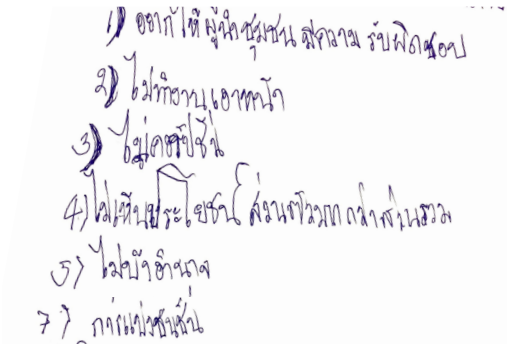 1) อยากให้ผู้นำชุมชน มีความ รับผิดชอบ
2) ไม่ทำงานเอาหน้า
3) ไม่คอรัปชั่น
4) ไม่เห็นประโยชน์ ส่วนตัวมากกว่าส่วนรวม
5) ไม่บ้าอำนาจ
7) การแบ่งชนชั้น